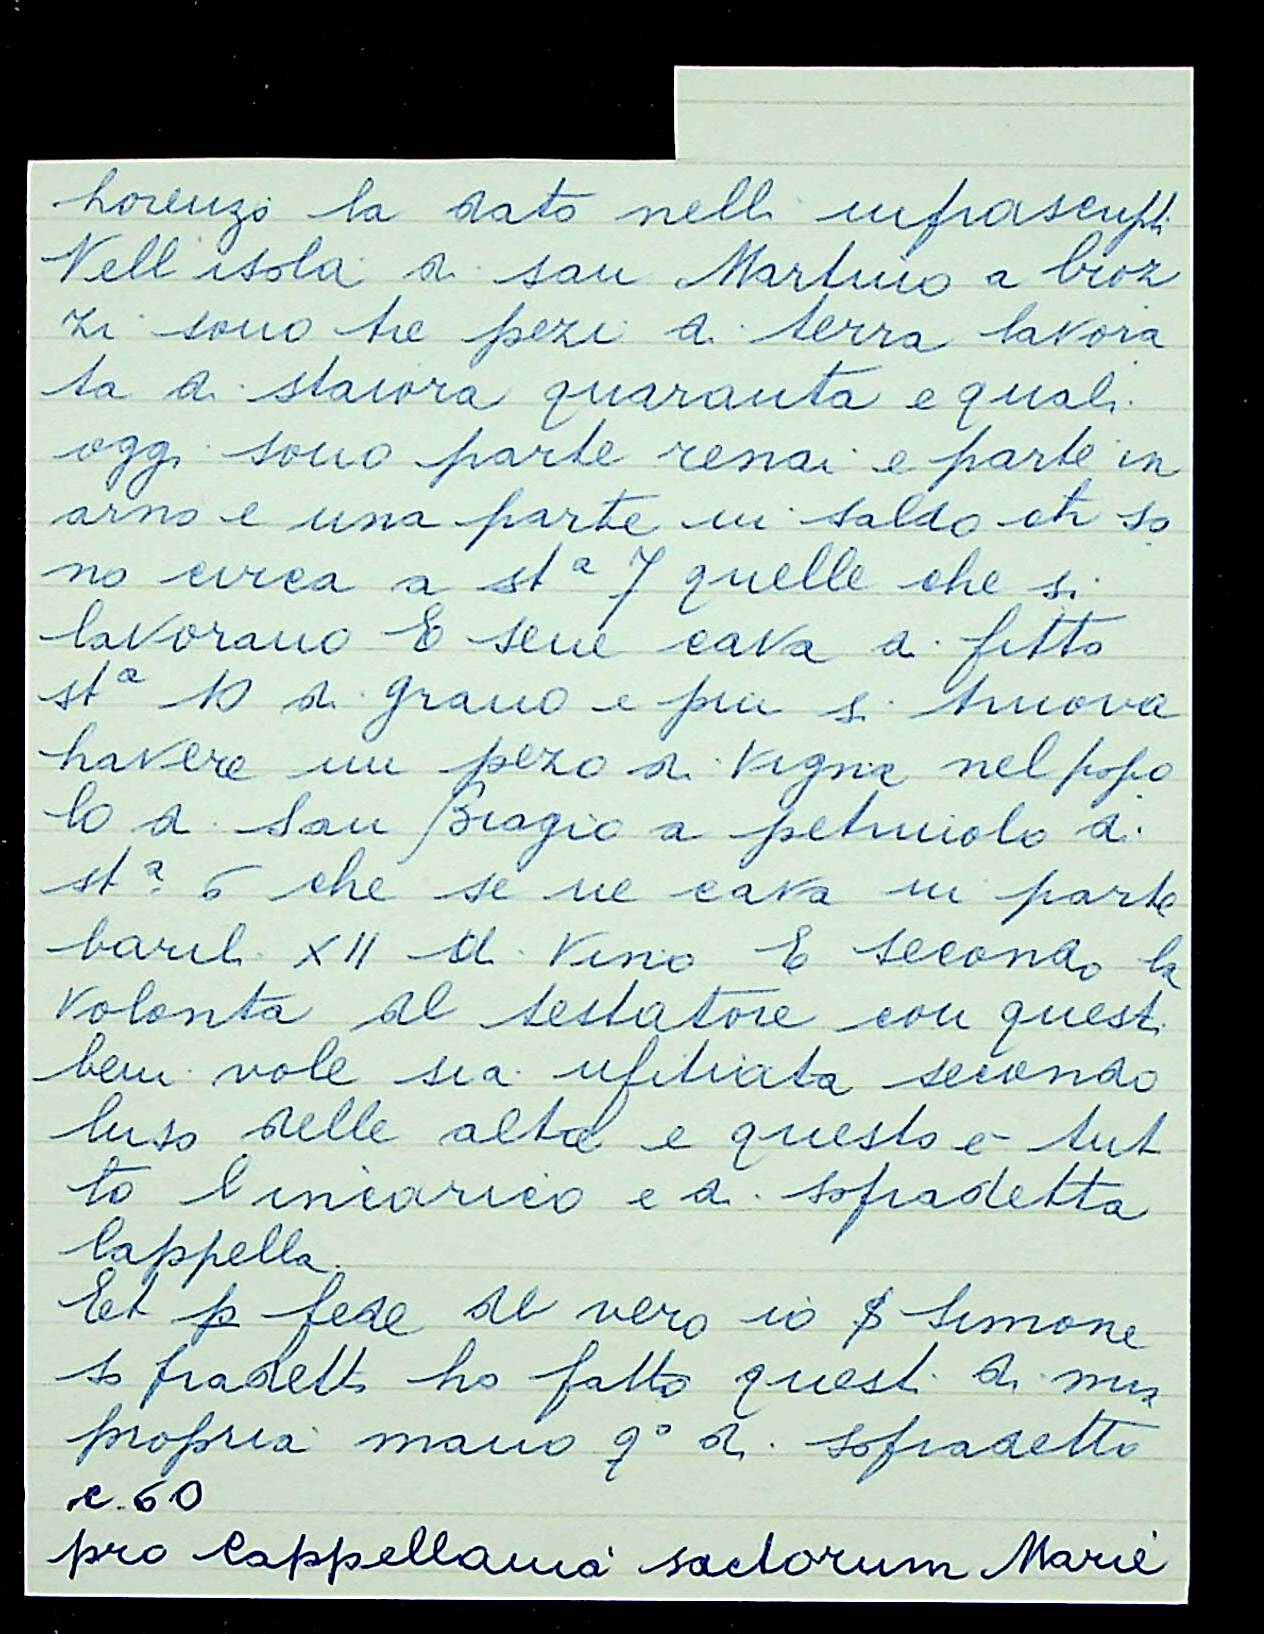 Lorenzo la dato nelli infrascripti
Nell isola di san Martino a broz
zi sono tre pezi di terra lavora
ta di staiora quaranta e quali
oggi sono parte renai e parte in
arno e una parte in saldo ch so
no circa a stª 7 quelle che si
lavorano E sene cava di fitto
stª 10 di grano e piu si truova
havere un pezo di vigna nel popo
lo di San Biagio a petruiolo di
stª 6 che se ne cava in parte
barili XII di vino E secondo la
volonta del testatore con questi
beni vole sia ufitiata secondo
luso delle altre e questo e tut
to l incarico e di sopradetta
Cappella
Et p fede del vero io S Simone
sopradetto ho fatto questi di mia
propria mano qº di sopradetto
c. 60
pro Cappellania sactorum Marie